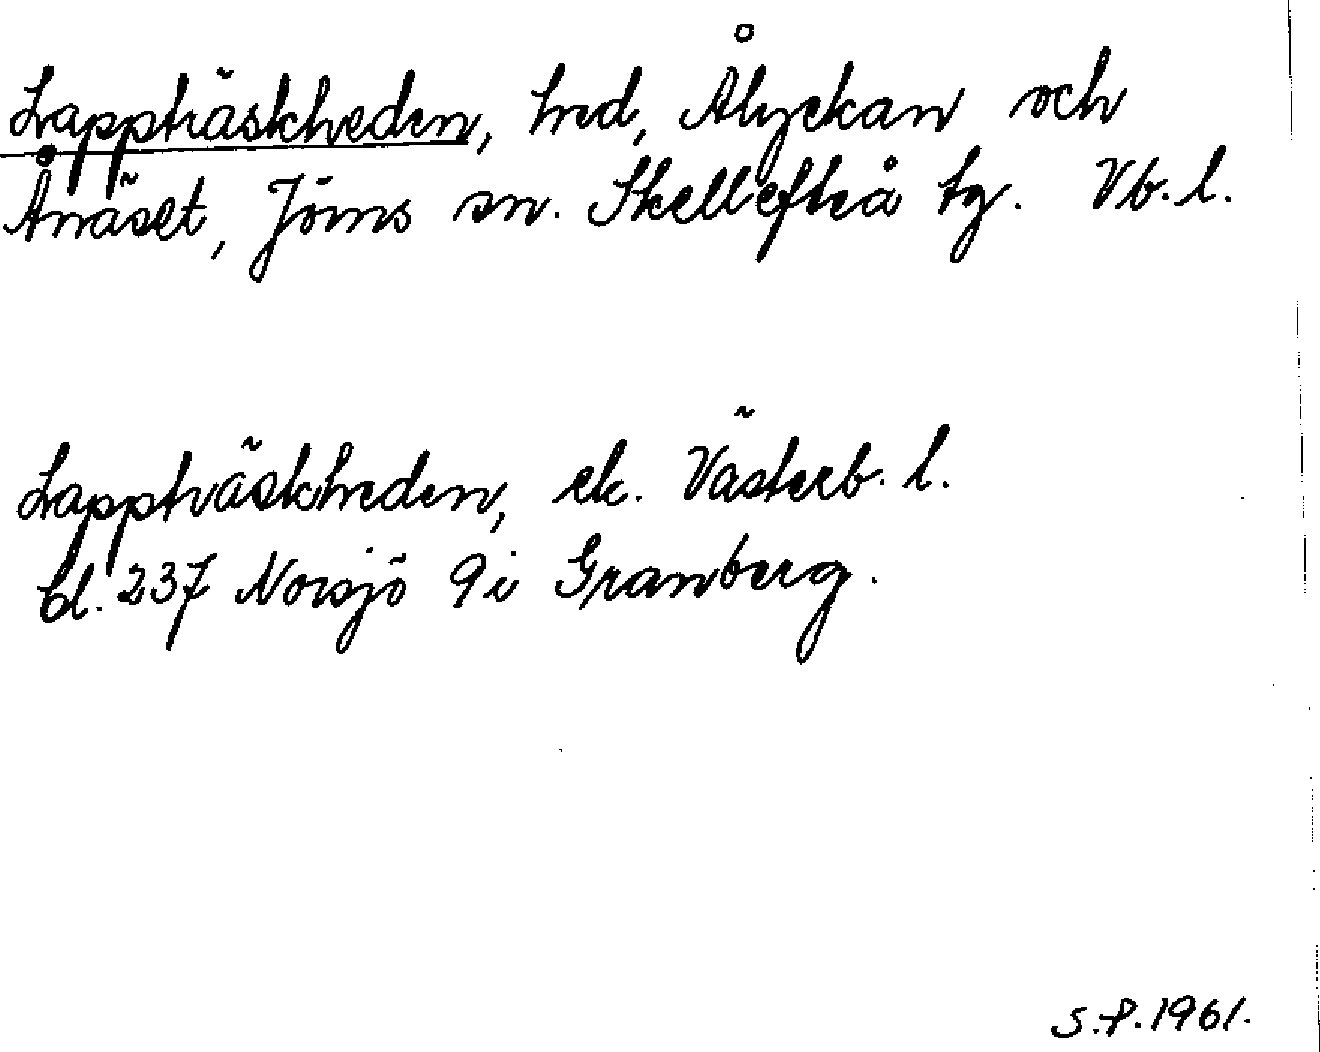 Lappträskheden, hed, Ålyckan och
Ånäset, Jörns sn. Skellefteå tg. Vb. l.
Lappträskheden, ek. Västerb. l.
bl. 237 Norsjö 9i Granberg.
S.P. 1961.